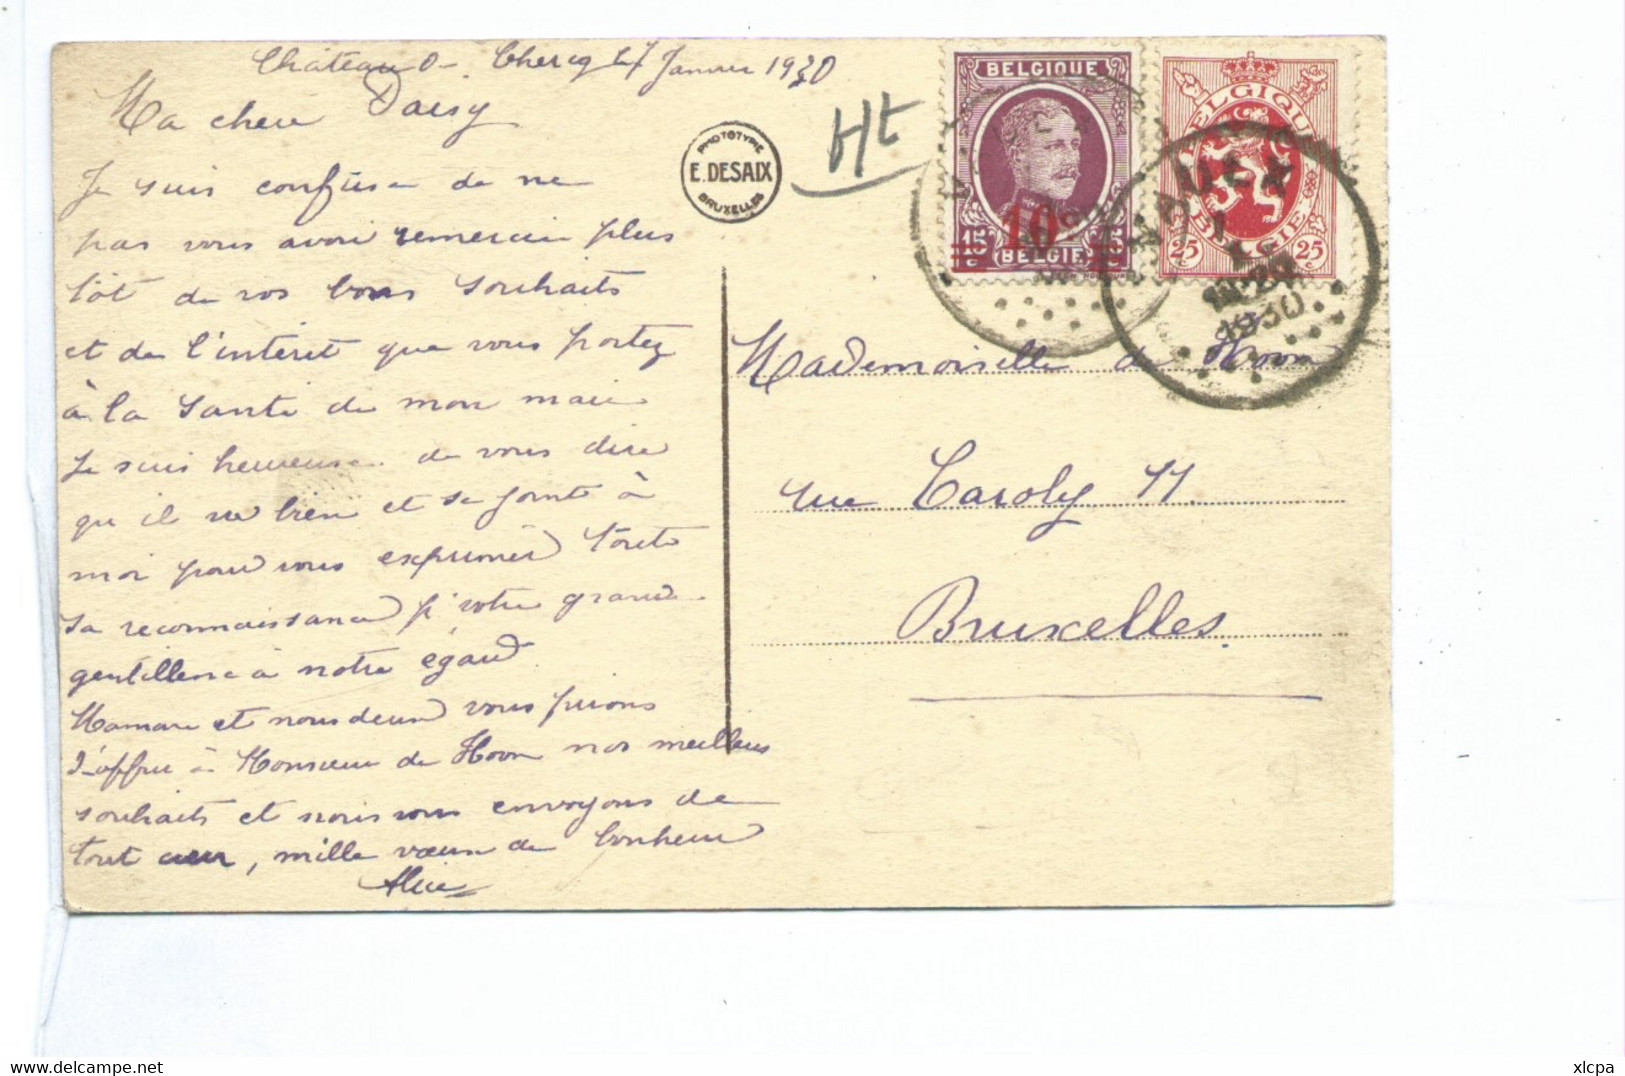 Château d- Chercq le 7 Janvier 1930
Ma chère Daisy
Je suis confuse de ne
pas vous avoir remercié plus
tôt de vos bons souhaits
et de l'intérêt que vous portez
à la santé de mon mari
Je suis heureuse de vous dire
qu'il va bien et se joint à
moi pour vous exprimer toute
sa reconnaissance p' votre grande
gentillesse à notre égard
Maman et nous deux vous prions
d'offrir à Monsieur de Hoon nos meilleurs
souhaits et nous vous envoyons de
tout cœur, mille vœux de bonheur
Alice
PHOTOTYPIE
E. DESAIX
BRUXELLES
Ht
BELGIQUE
10
15 15
BELGIE
BELGIQUE
BELGIE
25 25
1930
Mademoiselle de Hoon
rue Caroly 11
Bruxelles
xlcpa